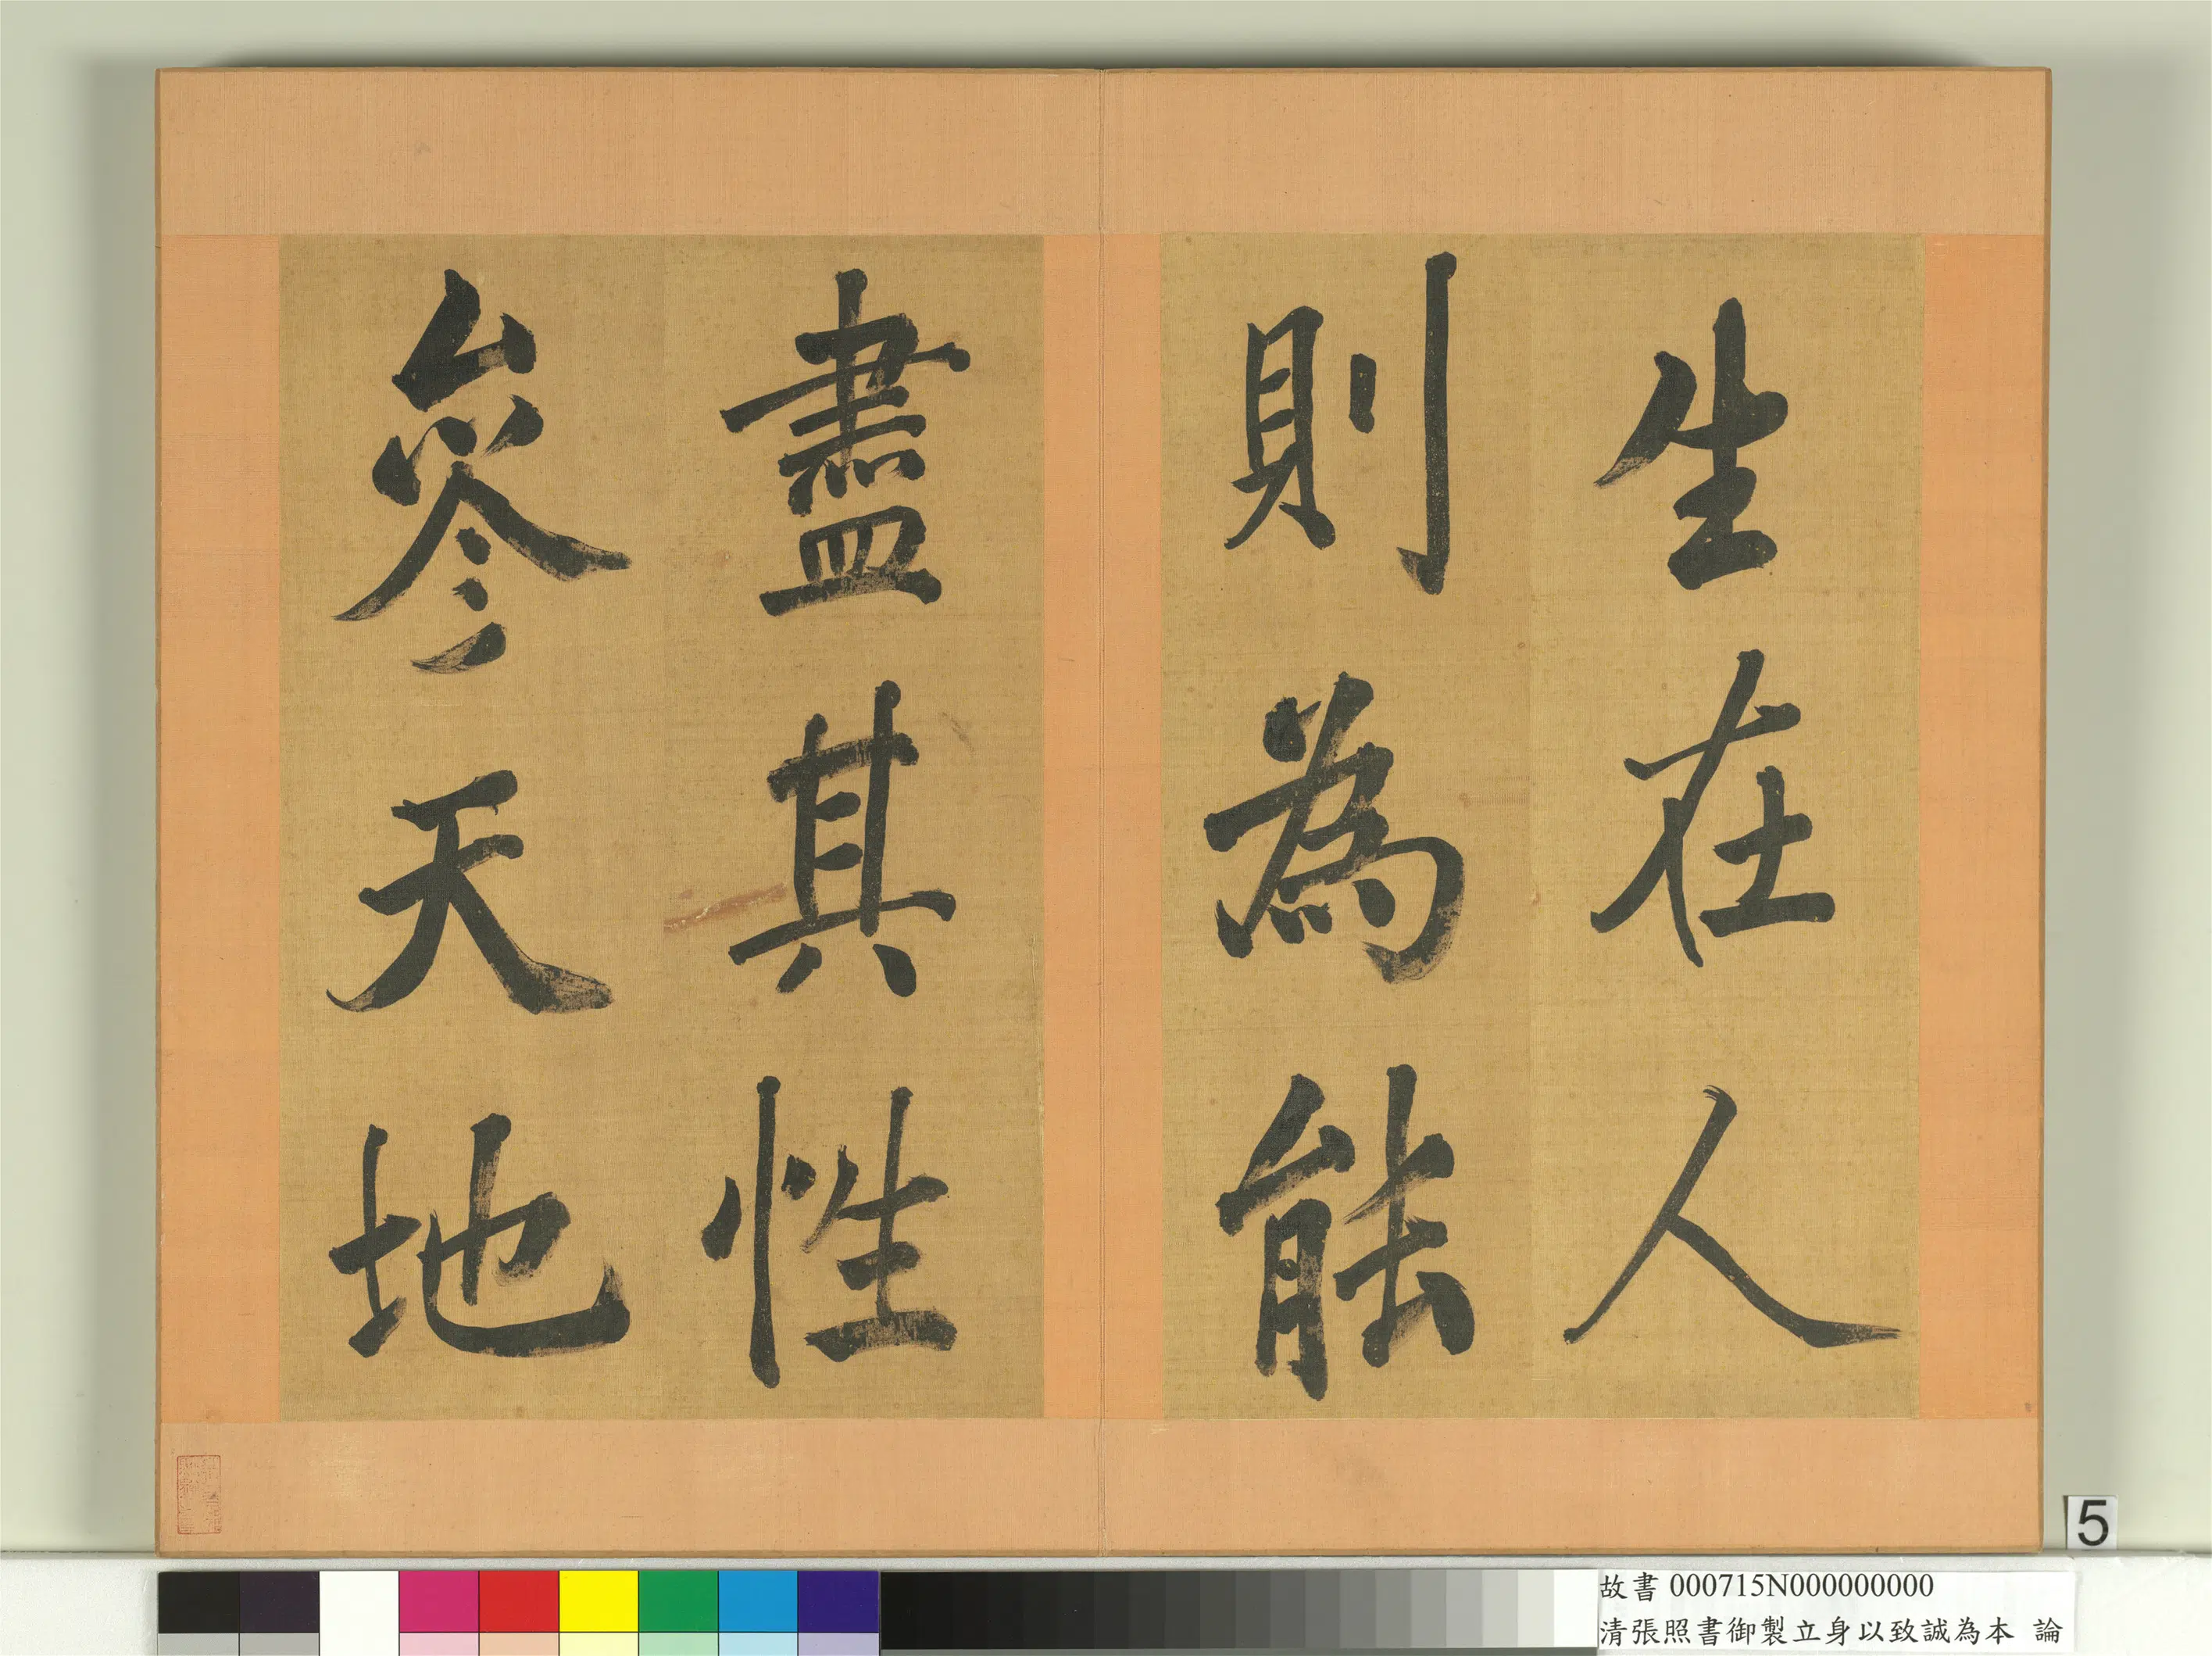 生在人
則為能
盡其性
參天地
5
故書 000715N000000000
清張照書御製立身以致誠為本 論